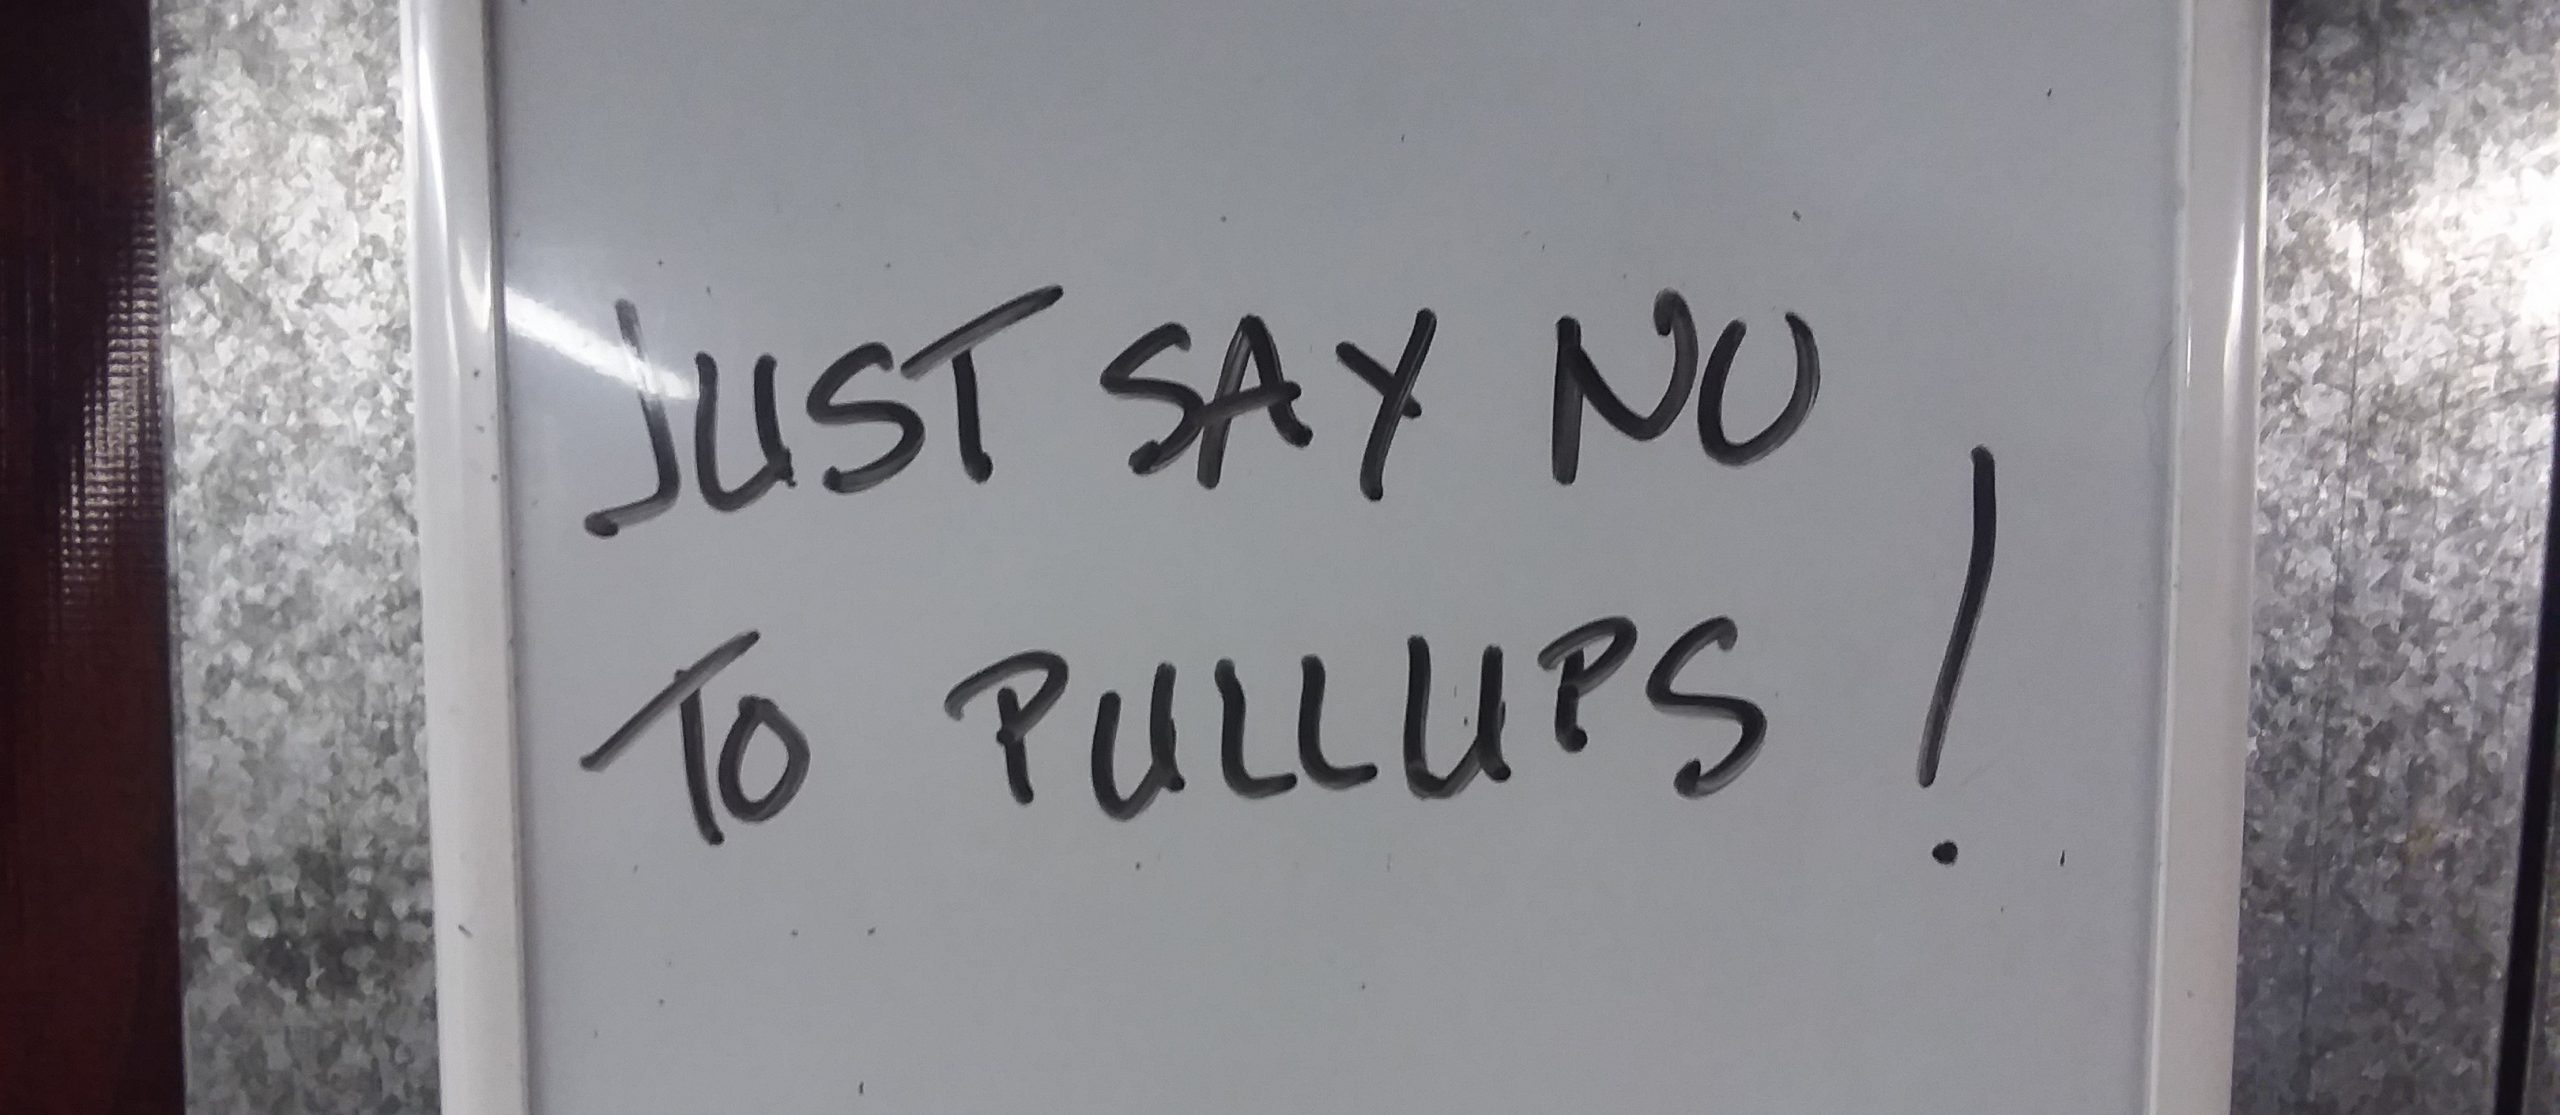 JUST SAY NO
TO PULLUPS!